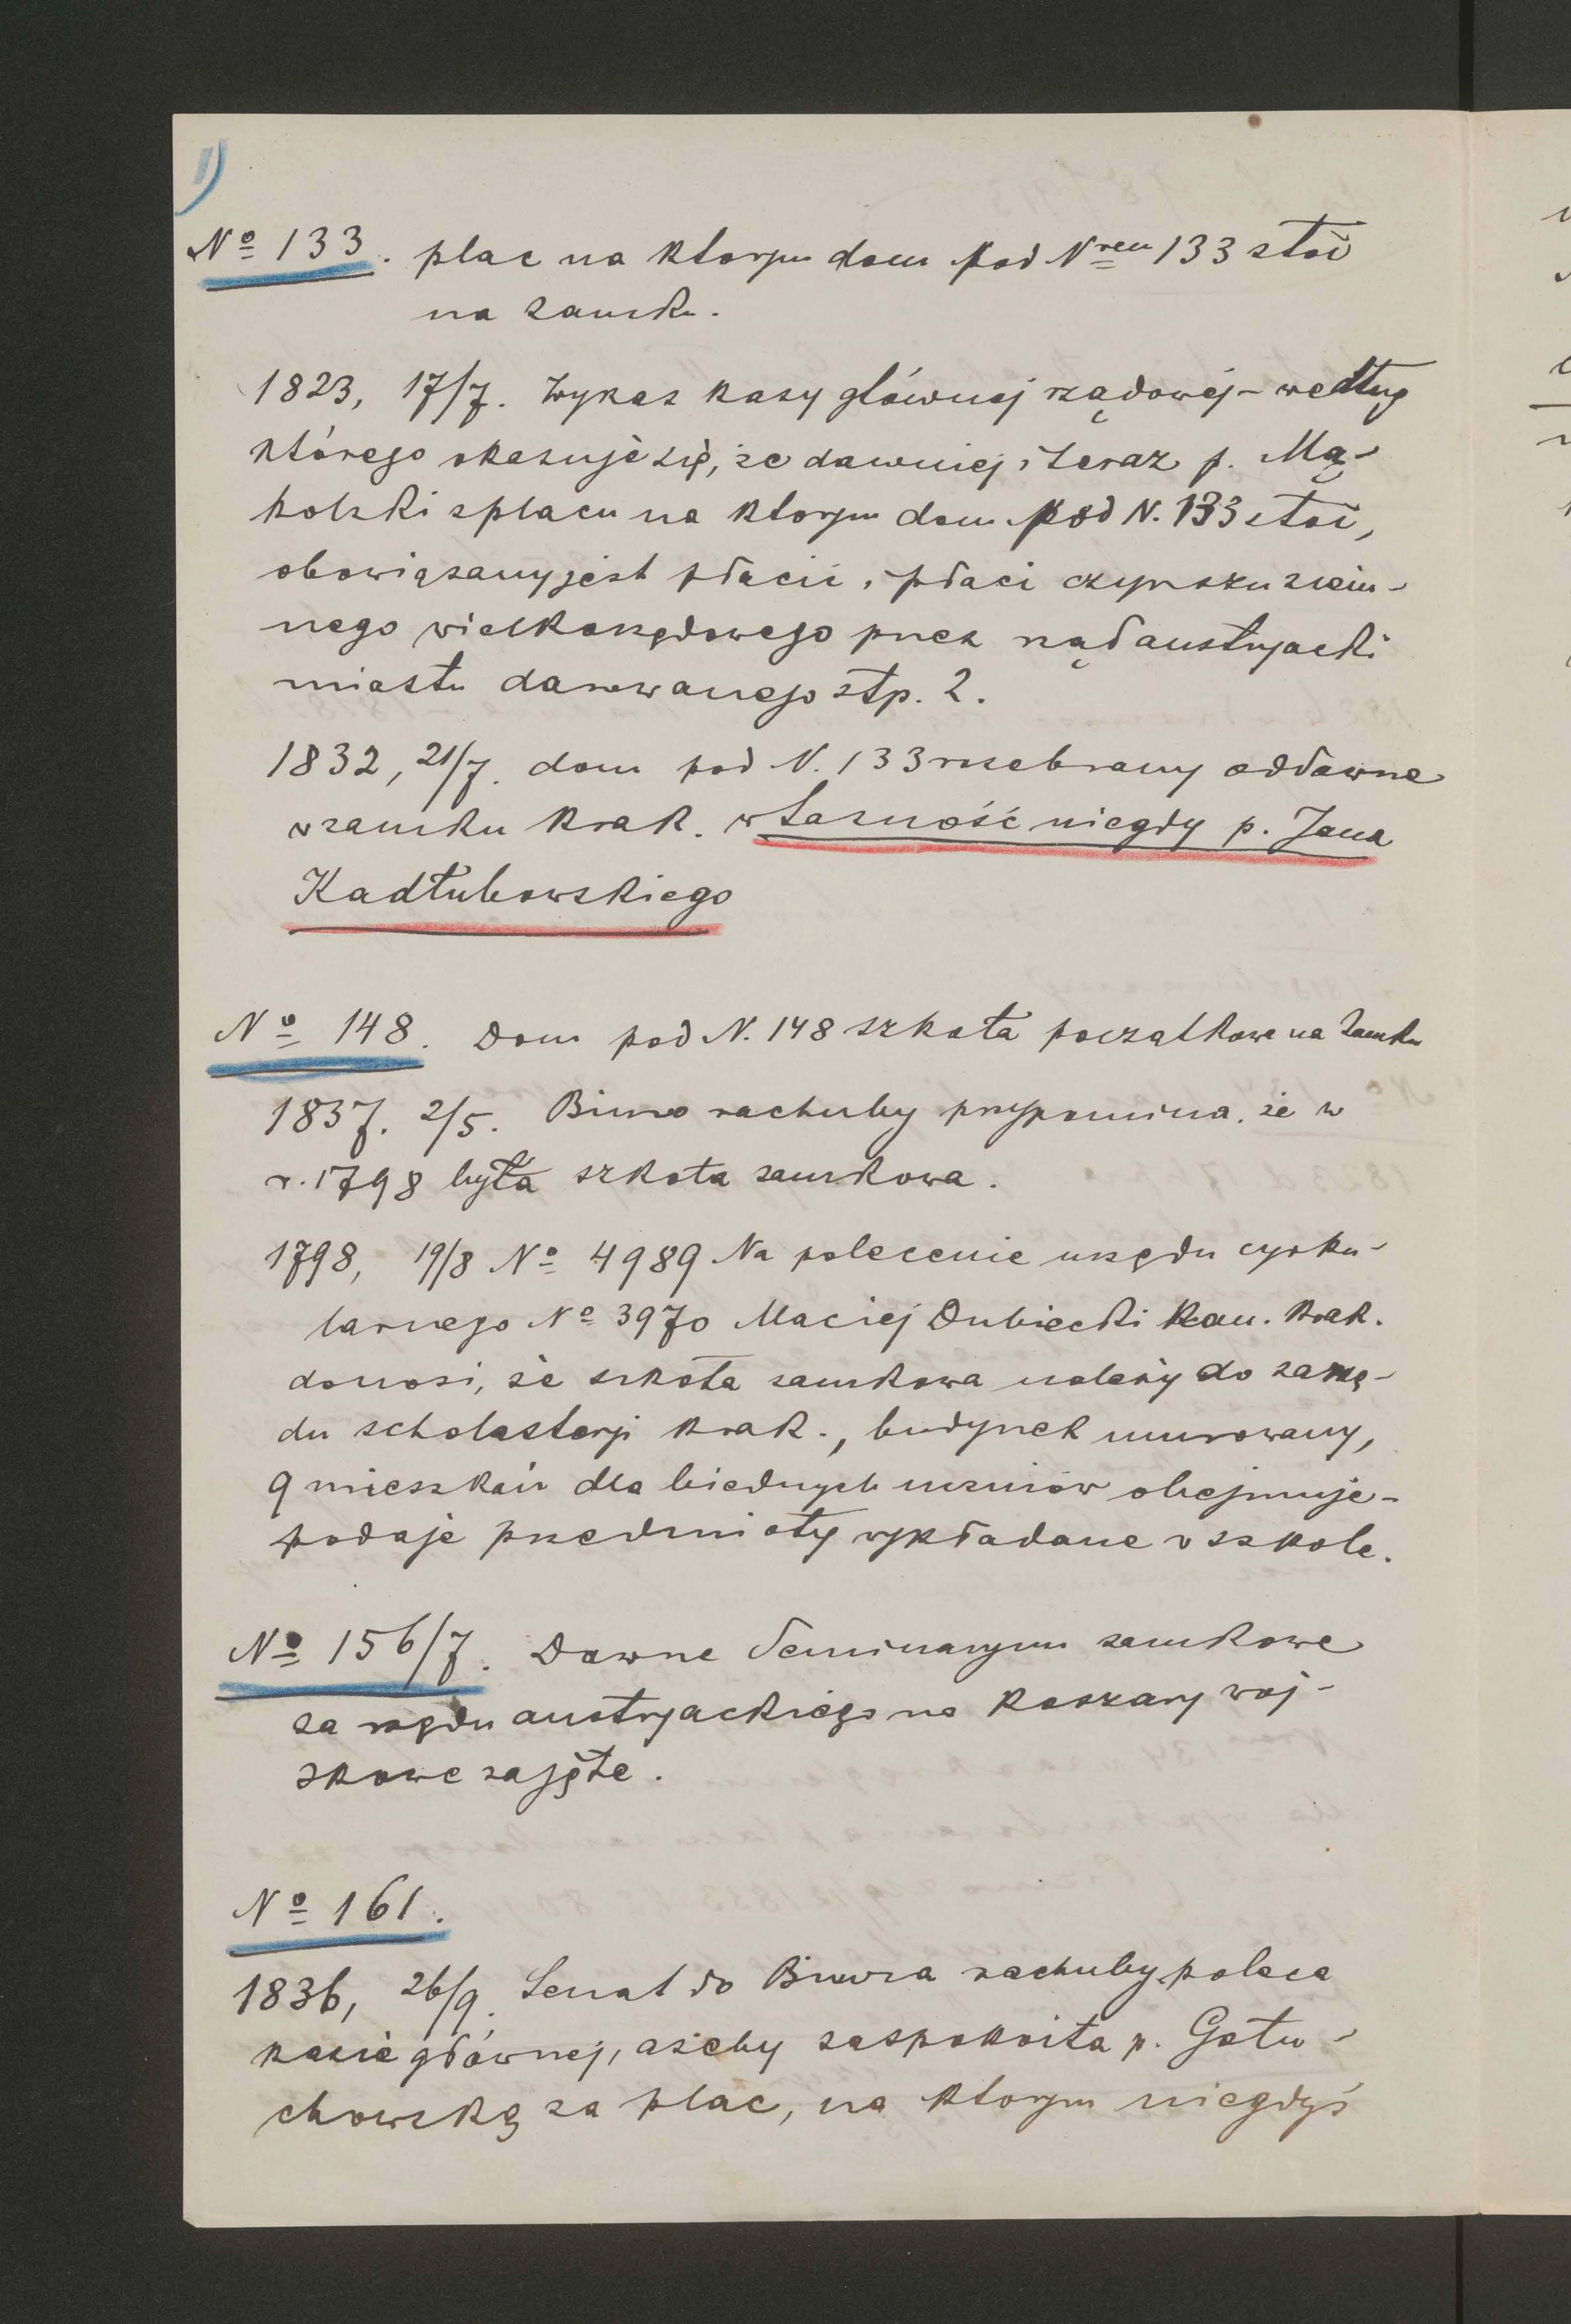 1)
№ 133. plac na ktorym dom pod Nrem 133 stoi
na zamku.
1823, 17/7. Wykaz kasy głównej rządowej - według
którego okazuje się, że dawniej i teraz p. Mą-
kolski z placu na ktorym dom pod N. 133 stoi,
obowiązany jest płacić i płaci czynszu ziem-
nego wielkorządowego przez rząd austryacki
miastu darowanego złp. 2.
1832, 21/7. dom pod N. 133 rozebrany oddawna
w zamku krak. własność niegdy p. Jana
Kadłubowskiego
№ 148. Dom pod N. 148 szkoła początkowa na Zamku
1837. 2/5. Biuro rachuby przypomina, że w
r. 1798 była szkoła zamkowa.
1798, 19/8 № 4989 Na polecenie urzędu cyrku-
larnego № 3970 Maciej Dubiecki Kan. krak.
donosi, że szkoła zamkowa należy do zarzą-
du scholasterji krak., budynek murowany,
9 mieszkań dla biednych uczniów obejmuje -
podaje przedmioty wykładane w szkole.
№ 156/7. Dawne Seminaryum zamkowe
za rządu austryackiego na koszary woj-
skowe zajęte.
№ 161.
1836, 26/9. Senat do Biura rachuby poleca
kasie głównej, ażeby zaspokoiła p. Gołu-
chowską za plac, na ktorym niegdyś